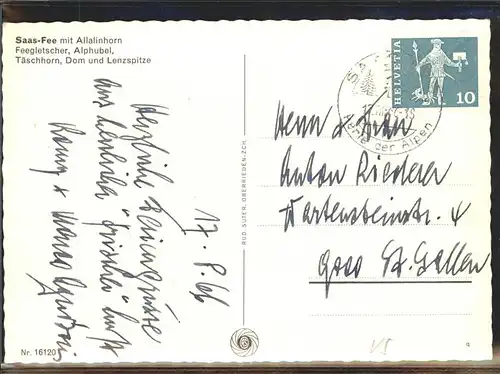 Saas-Fee mit Allalinhorn
Feegletscher, Alphubel,
Täschhorn, Dom und Lenzspitze
17. 8. 66
Herzliche Feriengrüsse
aus herrlich frischer Luft
RUD. SUTER, OBERRIEDEN-ZCH.
Nr. 16120
HELVETIA
10
Perle der Alpen
Herrn & Frau
Anton Riederer
Wartensteinstr. 4
9000 St. Gallen